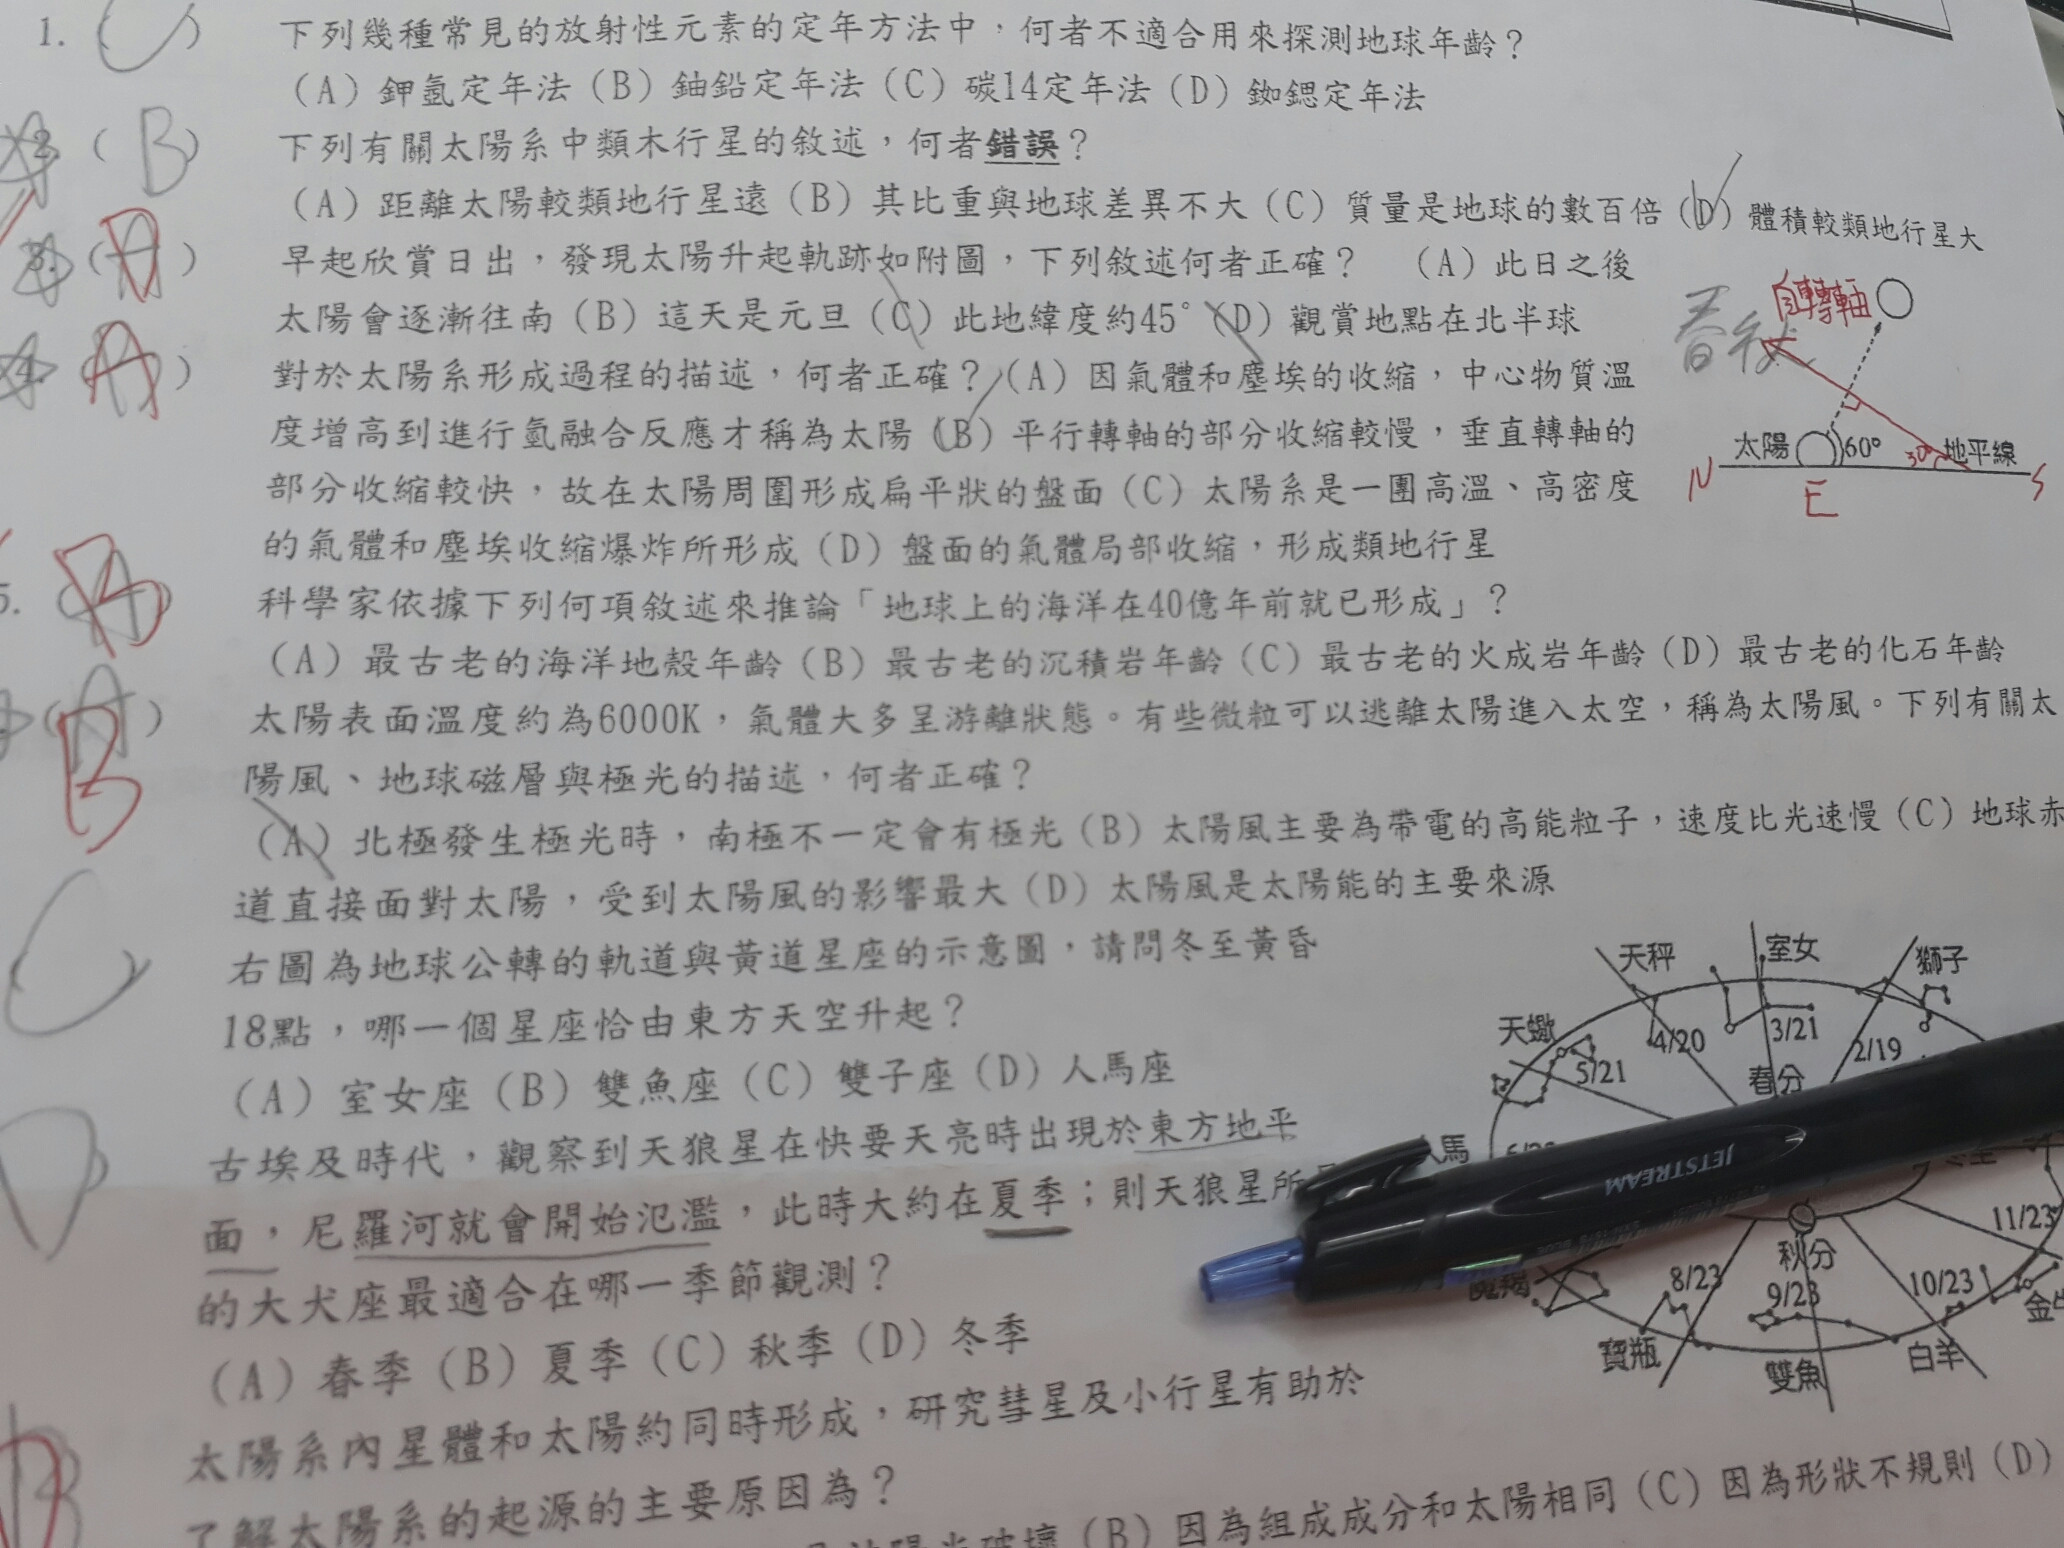 1. ( C ) 下列幾種常見的放射性元素的定年方法中，何者不適合用來探測地球年齡？
(A) 鉀氬定年法 (B) 鈾鉛定年法 (C) 碳14定年法 (D) 銣鍶定年法
2. ( B ) 下列有關太陽系中類木行星的敘述，何者錯誤？
(A) 距離太陽較類地行星遠 (B) 其比重與地球差異不大 (C) 質量是地球的數百倍 (D) 體積較類地行星大
3. ( D ) 早起欣賞日出，發現太陽升起軌跡如附圖，下列敘述何者正確？ (A) 此日之後
太陽會逐漸往南 (B) 這天是元旦 (C) 此地緯度約45° (D) 觀賞地點在北半球
春秋
自轉軸
太陽 60° 30° 地平線
N E S
4. ( A ) 對於太陽系形成過程的描述，何者正確？ (A) 因氣體和塵埃的收縮，中心物質溫
度增高到進行氫融合反應才稱為太陽 (B) 平行轉軸的部分收縮較慢，垂直轉軸的
部分收縮較快，故在太陽周圍形成扁平狀的盤面 (C) 太陽系是一團高溫、高密度
的氣體和塵埃收縮爆炸所形成 (D) 盤面的氣體局部收縮，形成類地行星
5. ( B ) 科學家依據下列何項敘述來推論「地球上的海洋在40億年前就已形成」？
(A) 最古老的海洋地殼年齡 (B) 最古老的沉積岩年齡 (C) 最古老的火成岩年齡 (D) 最古老的化石年齡
( A ) B 太陽表面溫度約為6000K，氣體大多呈游離狀態。有些微粒可以逃離太陽進入太空，稱為太陽風。下列有關太
陽風、地球磁層與極光的描述，何者正確？
(A) 北極發生極光時，南極不一定會有極光 (B) 太陽風主要為帶電的高能粒子，速度比光速慢 (C) 地球赤
道直接面對太陽，受到太陽風的影響最大 (D) 太陽風是太陽能的主要來源
C 右圖為地球公轉的軌道與黃道星座的示意圖，請問冬至黃昏
18點，哪一個星座恰由東方天空升起？
(A) 室女座 (B) 雙魚座 (C) 雙子座 (D) 人馬座
天秤 室女 獅子
天蠍 5/21 4/20 3/21 2/19
春分
人馬
秋分 11/23
8/23 9/23 10/23
寶瓶 雙魚 白羊
JETSTREAM
D 古埃及時代，觀察到天狼星在快要天亮時出現於東方地平
面，尼羅河就會開始氾濫，此時大約在夏季；則天狼星所
的大犬座最適合在哪一季節觀測？
(A) 春季 (B) 夏季 (C) 秋季 (D) 冬季
太陽系內星體和太陽約同時形成，研究彗星及小行星有助於
了解太陽系的起源的主要原因為？
(B) 因為組成成分和太陽相同 (C) 因為形狀不規則 (D)